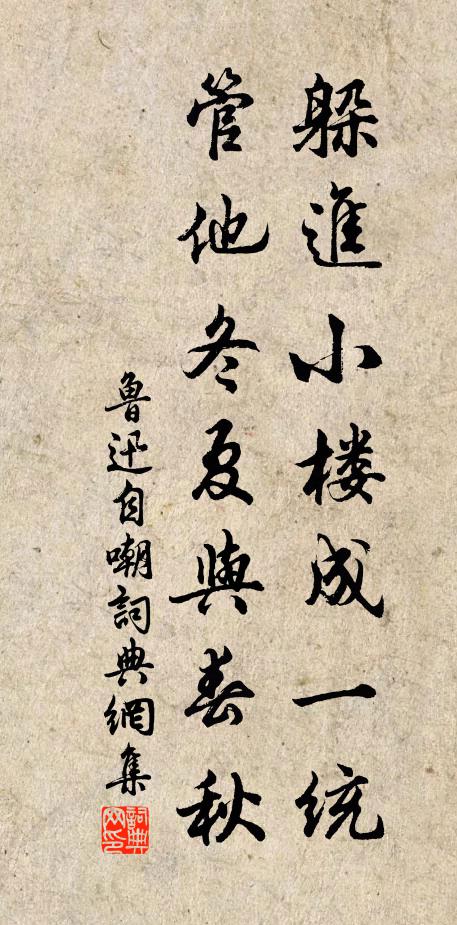 躲進小楼成一统
管他冬夏與春秋
魯迅自嘲詞典網集
詞典網印